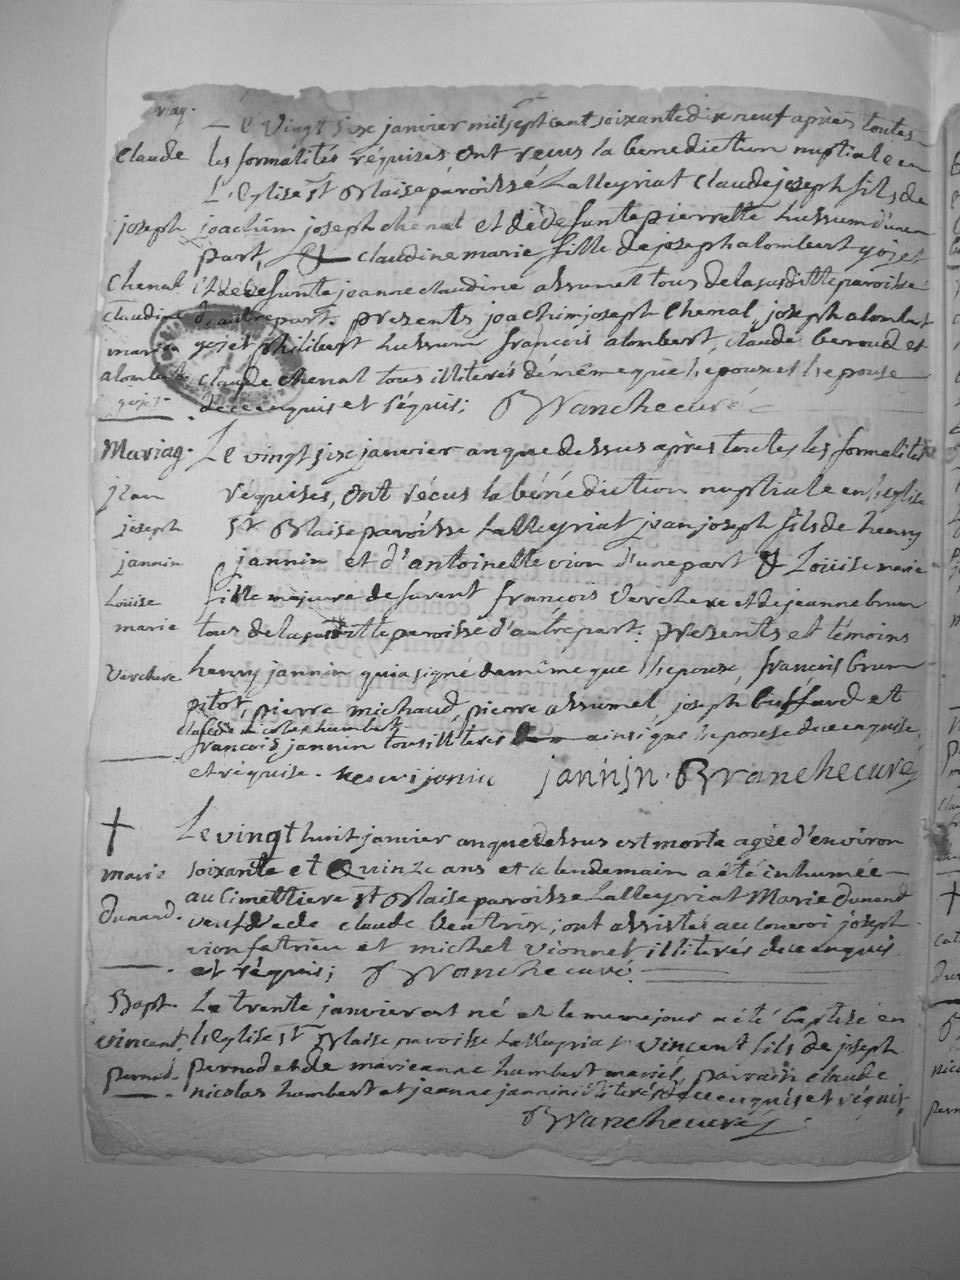 mag.
Le Vingt six janvier mil sept cent soixante dix neuf après toutes
Claude les formalités réquises ont recus la benediction nuptiale en
L'eglise St Blaise paroisse Lalleyriat Claude joseph fils de
joseph joachim joseph chenal et de defunte pierrette hussum d'une
part, Et claudine marie fille de joseph alombert gojet
Chenal et de defunte jeanne claudine assumel tous de la susditte paroisse
Claudine d'autre part. presents joachim joseph Chenal, joseph alombert
marie gojet philibert hussum françois alombert, claude beroud et
alombert claude chenal tous illiterés de même que l'epoux et l'epouse
gojet de ce enquis et réquis; Branche curé
Mariag. Le vingt six janvier an que dessus après toutes les formalités
jean réquises, ont récus la bénédiction nuptiale en l'eglise
joseph St Blaise paroisse Lalleyriat jean joseph fils de henry
jannin jannin et d'antoinette vion d'une part & Loüise marie
Loüise fille majeure de furent françois Verchere et de jeanne brun
marie tous de la susditte paroisse d'autre part. presents et témoins
Verchere henry jannin qui a signé de même que l'epoux, françois brun
pitot, pierre michaud, pierre assumel joseph buffard et
claude nicolas humbert
françois jannin tous illiteres ainsi que l'epouse de ce enquise
et réquise. henri janin jannin. Branche curé
† Le vingt huit janvier an que dessus est morte agée d'environ
marie soixante et Quinze ans et le lendemain a été inhumée
au Cimettiere St Blaise paroisse Lalleyriat Marie dunand
dunand. veufve de claude beatrix; ont assistés au convoi joseph
vion et michel vionnet illiterés de ce enquis
et réquis; Branche curé
Bapt. Le trente janvier est né et le meme jour a été baptisé en
vincent l'eglise St Blaise paroisse Lalleyriat vincent fils de joseph
pernod. pernod et de marieanne humbert mariés, parrain claude
nicolas humbert et jeanne jannin illiterés de ce enquis et réquis
Branche curé